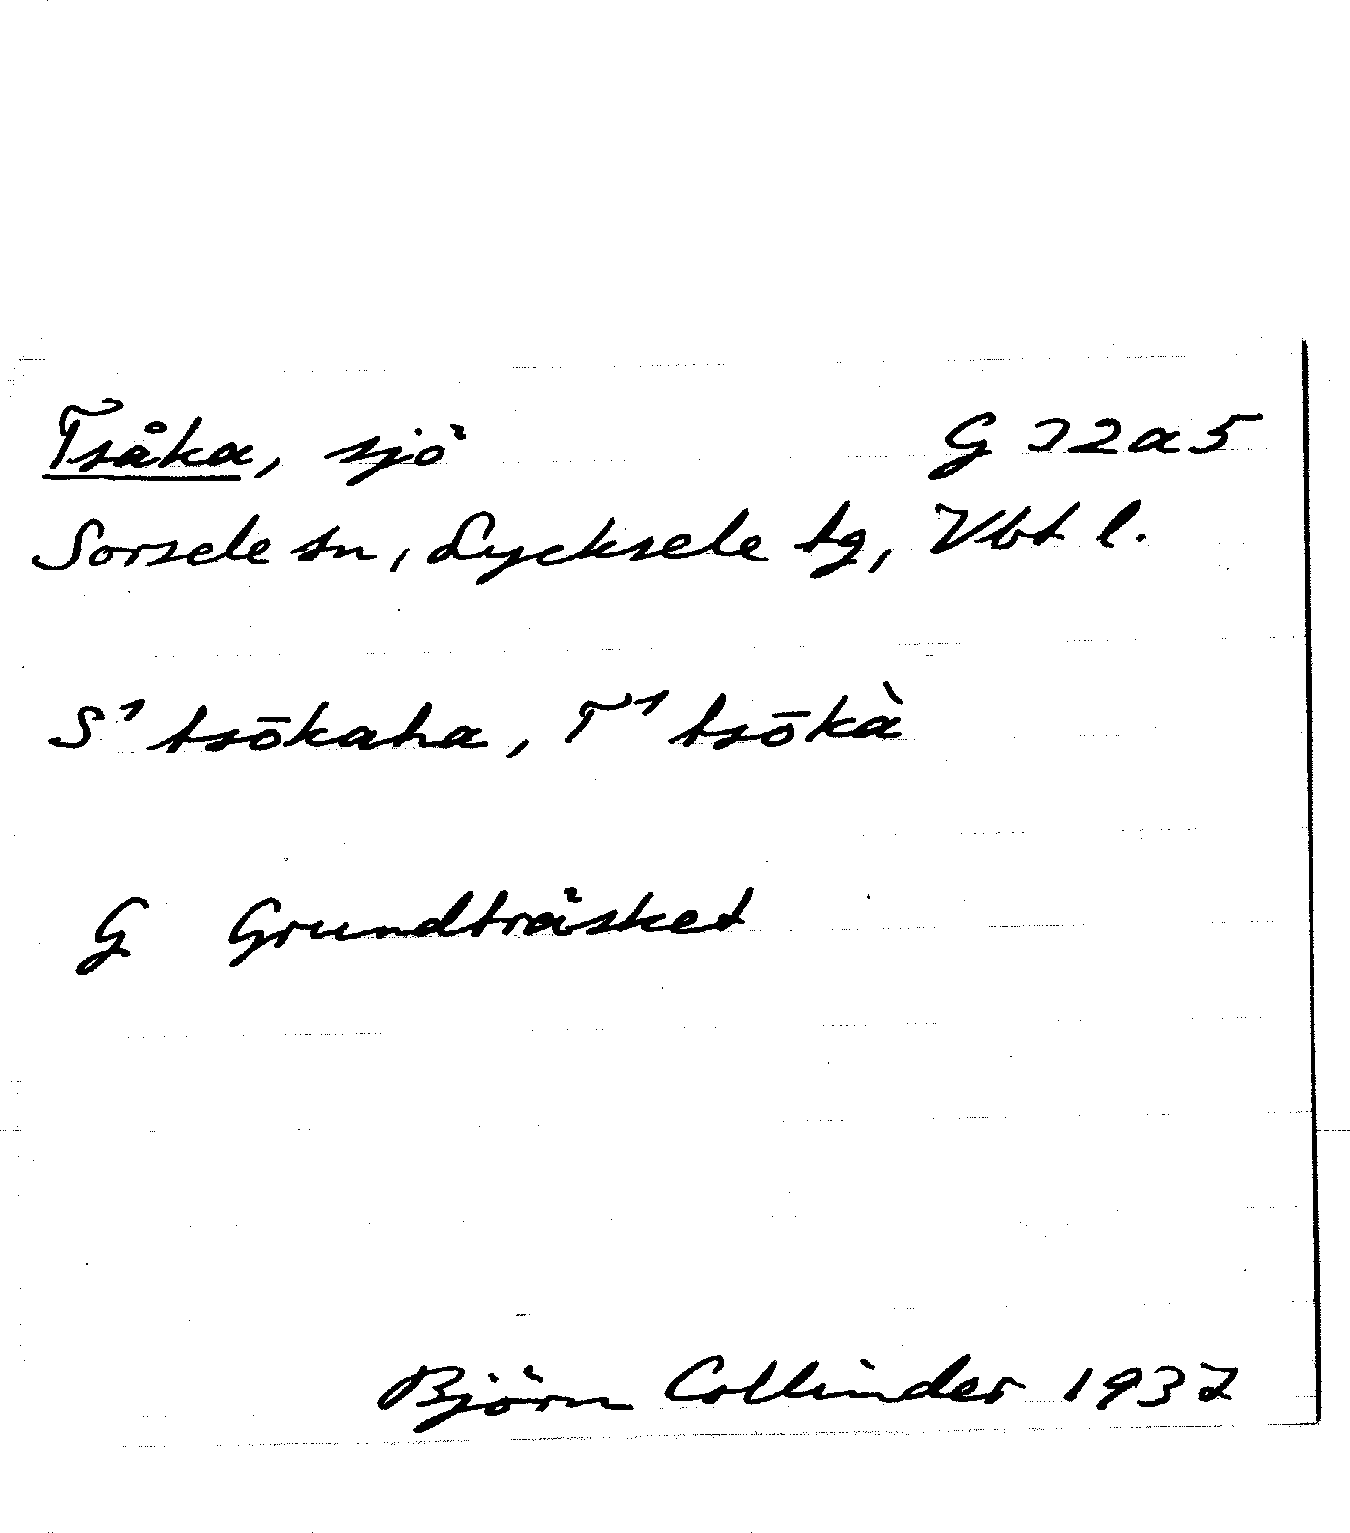 Tsåka, sjö G 32a5
Sorsele sn, Lycksele tg, Vbt l.
S¹ tsōkaha, T¹ tsōkà
G Grundträsket
Björn Collinder 1937